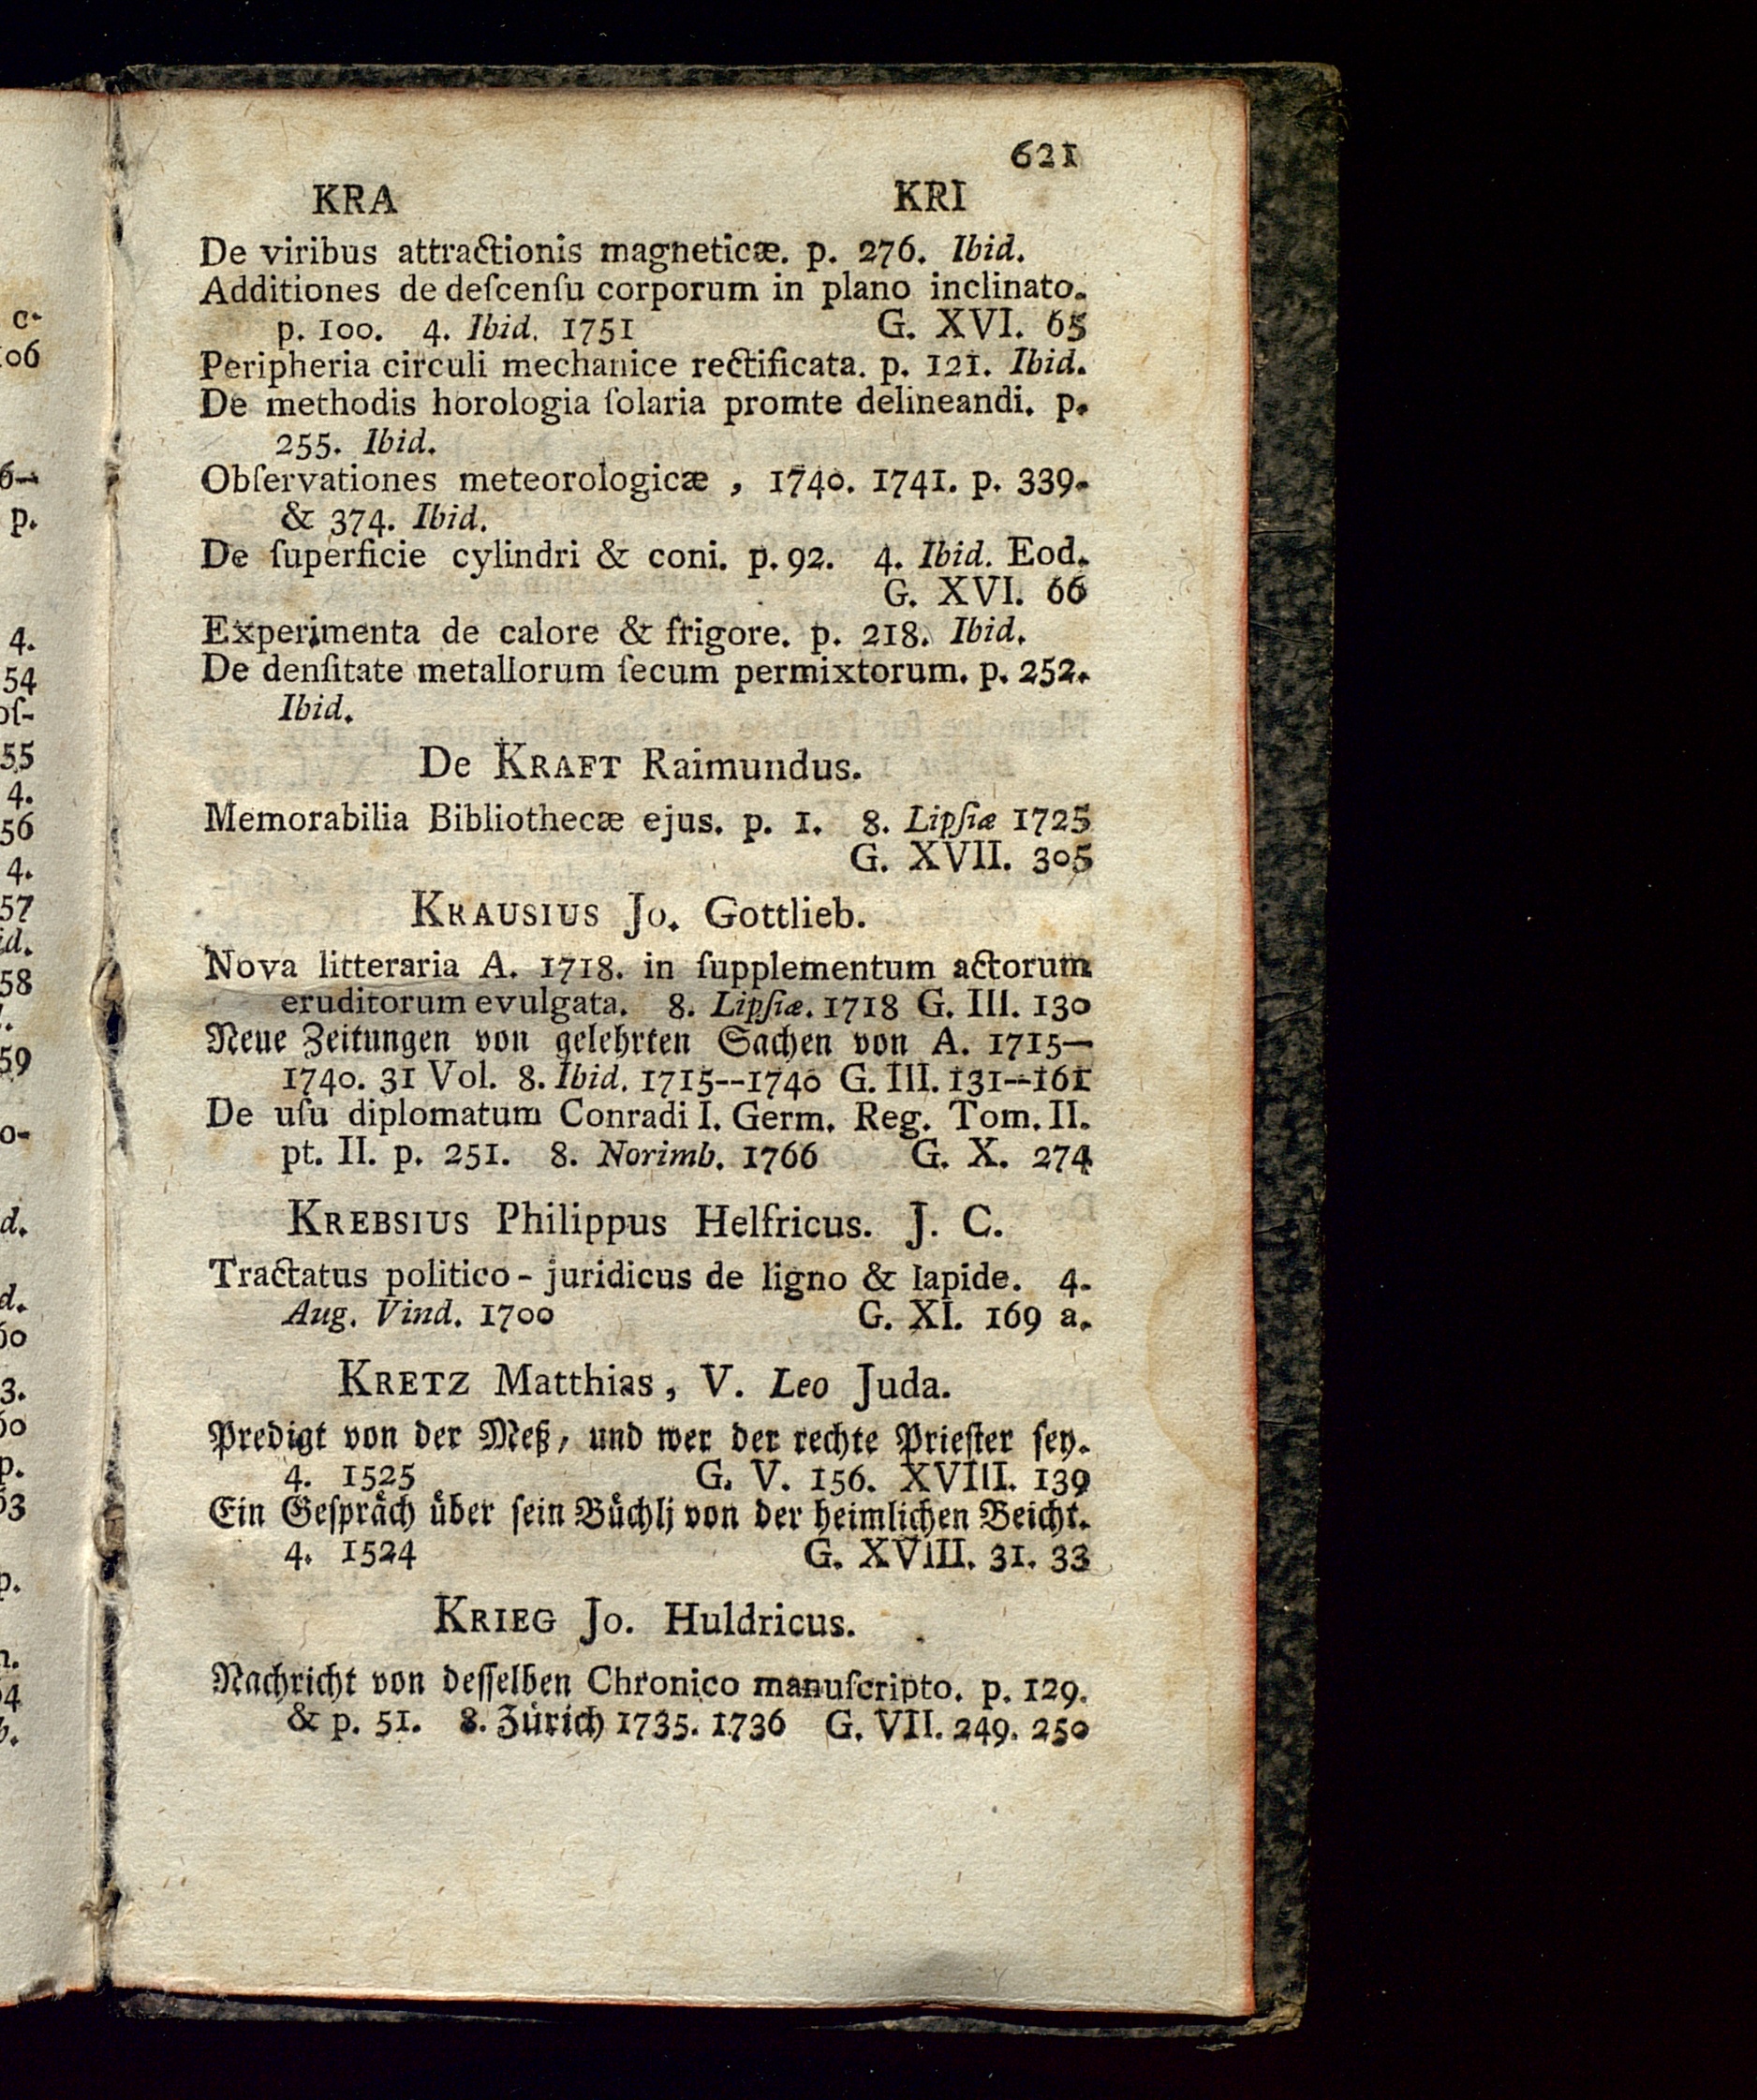 621
KRA KRI
De viribus attractionis magneticæ. p. 276. Ibid.
Additiones de deſcenſu corporum in plano inclinato.
p. 100. 4. Ibid. 1751 G. XVI. 65
Peripheria circuli mechanice rectificata. p. 121. Ibid.
De methodis horologia ſolaria promte delineandi. p.
255. Ibid.
Obſervationes meteorologicæ , 1740. 1741. p. 339.
& 374. Ibid.
De ſuperficie cylindri & coni. p. 92. 4. Ibid. Eod.
G. XVI. 66
Experimenta de calore & frigore. p. 218. Ibid.
De denſitate metallorum ſecum permixtorum. p. 252.
Ibid.
De KRAFT Raimundus.
Memorabilia Bibliothecæ ejus. p. 1. 8. Lipſiæ 1725
G. XVII. 305
KRAUSIUS Jo. Gottlieb.
Nova litteraria A. 1718. in ſupplementum actorum
eruditorum evulgata. 8. Lipſiæ. 1718 G. III. 130
Neue Zeitungen von gelehrten Sachen von A. 1715—
1740. 31 Vol. 8. Ibid. 1715--1740 G. III. 131--161
De uſu diplomatum Conradi I. Germ. Reg. Tom. II.
pt. II. p. 251. 8. Norimb. 1766 G. X. 274
KREBSIUS Philippus Helfricus. J. C.
Tractatus politico - juridicus de ligno & lapide. 4.
Aug. Vind. 1700 G. XI. 169 a.
KRETZ Matthias, V. Leo Juda.
Predigt von der Meß, und wer der rechte Prieſter ſey.
4. 1525 G. V. 156. XVIII. 139
Ein Geſpräch über ſein Büchlj von der heimlichen Beicht.
4. 1524 G. XVIII. 31. 33
KRIEG Jo. Huldricus.
Nachricht von deſſelben Chronico manuſcripto. p. 129.
& p. 51. 8. Zürich 1735. 1736 G. VII. 249. 250